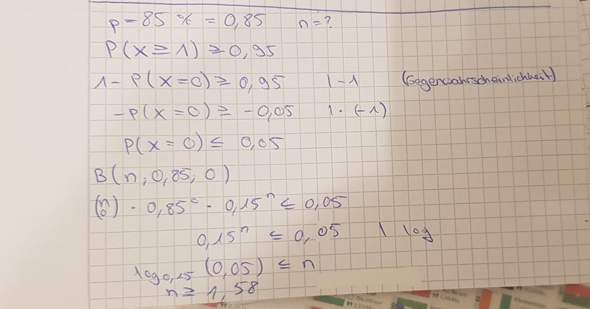 p = 85 % = 0,85 n = ?
P(X ≥ 1) ≥ 0,95
1 - P(X = 0) ≥ 0,95 | -1 (Gegenwahrscheinlichkeit)
-P(X = 0) ≥ -0,05 | · (-1)
P(X = 0) ≤ 0,05
B(n, 0,85, 0)
(n 0) · 0,85⁰ · 0,15ⁿ ≤ 0,05
0,15ⁿ ≤ 0,05 | log
log0,15 (0,05) ≤ n
n ≥ 1,58